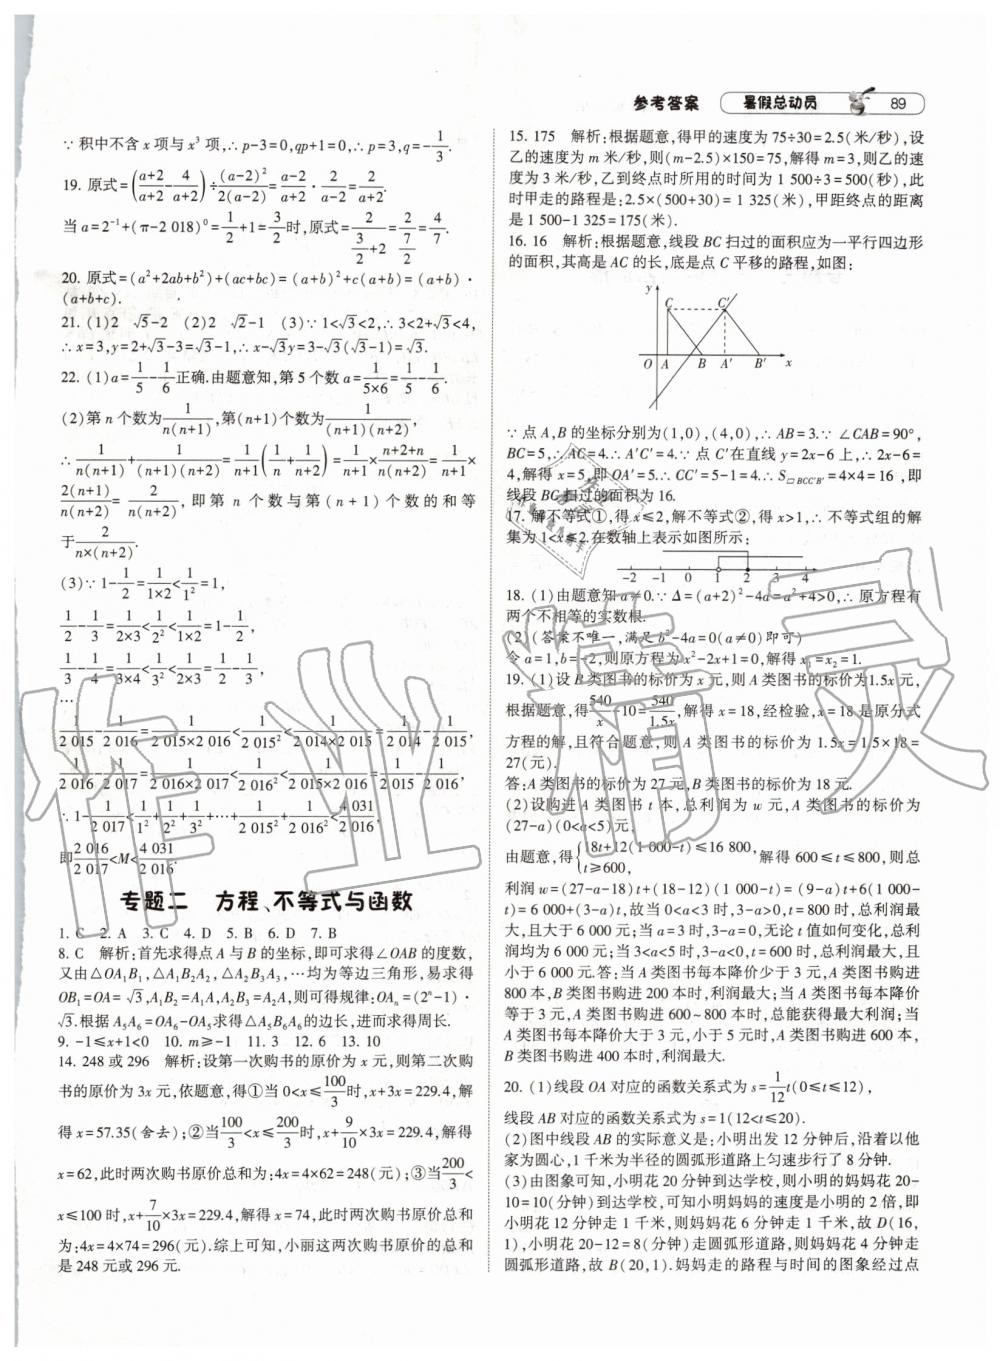 参考答案 暑假总动员 89
∵积中不含 x 项与 x³ 项,∴p-3=0,qp+1=0,∴p=3,q=-1/3.
19. 原式=((a+2)/(a+2)-4/(a+2))÷(a-2)²/2(a-2)=(a-2)/(a+2)·2/(a-2)=2/(a+2).
当 a=2⁻¹+(π-2 018)⁰=1/2+1=3/2时,原式=2/(3/2+2)=2/(7/2)=4/7.
20. 原式=(a²+2ab+b²)+(ac+bc)=(a+b)²+c(a+b)=(a+b)·
(a+b+c).
21. (1)2 √5-2 (2)2 √2-1 (3)∵1<√3<2,∴3<2+√3<4,
∴x=3,y=2+√3-3=√3-1,∴x-√3y=3-√3(√3-1)=√3.
22. (1)a=1/5-1/6正确.由题意知,第 5 个数 a=1/(5×6)=1/5-1/6.
(2)第 n 个数为1/n(n+1),第(n+1)个数为1/(n+1)(n+2),
∴1/n(n+1)+1/(n+1)(n+2)=1/(n+1)(1/n+1/(n+2))=1/(n+1)×(n+2+n)/n(n+2)=1/(n+1)×
2(n+1)/n(n+2)=2/n(n+2),即第 n 个数与第(n+1)个数的和等
于2/n×(n+2).
(3)∵1-1/2=1/(1×2)<1/1²=1,
1/2-1/3=1/(2×3)<1/2²<1/(1×2)=1-1/2,
1/3-1/4=1/(3×4)<1/3²<1/(2×3)=1/2-1/3,
…
1/2 015-1/2 016=1/(2 015×2 016)<1/2 015²<1/(2 014×2 015)=1/2 014-1/2 015,
1/2 016-1/2 017=1/(2 016×2 017)<1/2 016²<1/(2 015×2 016)=1/2 015-1/2 016,
∴1-1/2 017<1/1²+1/2²+1/3²+…+1/2 015²+1/2 016²<4 031/2 016,
即2 016/2 017<M<4 031/2 016.
专题二 方程、不等式与函数
1. C 2. A 3. C 4. D 5. B 6. D 7. B
8. C 解析:首先求得点 A 与 B 的坐标,即可求得∠OAB 的度数,
又由△OA₁B₁,△A₁B₂A₂,△A₂B₃A₃,…均为等边三角形,易求得
OB₁=OA=√3,A₁B₂=A₁A,A₂B₃=A₂A,则可得规律:OAₙ=(2ⁿ-1)·
√3.根据 A₅A₆=OA₆-OA₅求得△A₅B₆A₆的边长,进而求得周长.
9. -1≤x+1<0 10. m≥-1 11. 3 12. 6 13. 10
14. 248 或 296 解析:设第一次购书的原价为 x 元,则第二次购
书的原价为 3x 元,依题意,得①当 0<x≤100/3时,x+3x=229.4,解
得 x=57.35(舍去);②当100/3<x≤200/3时,x+9/10×3x=229.4,解得
x=62,此时两次购书原价总和为:4x=4×62=248(元);③当200/3<
x≤100 时,x+7/10×3x=229.4,解得 x=74,此时两次购书原价总和
为:4x=4×74=296(元).综上可知,小丽这两次购书原价的总和
是 248 元或 296 元.
15. 175 解析:根据题意,得甲的速度为 75÷30=2.5(米/秒),设
乙的速度为 m 米/秒,则(m-2.5)×150=75,解得 m=3,则乙的速
度为 3 米/秒,乙到终点时所用的时间为 1 500÷3=500(秒),此
时甲走的路程是:2.5×(500+30)=1 325(米),甲距终点的距离
是 1 500-1 325=175(米).
16. 16 解析:根据题意,线段 BC 扫过的面积应为一平行四边形
的面积,其高是 AC 的长,底是点 C 平移的路程,如图:
y
C C′
O A B A′ B′ x
∵点 A,B 的坐标分别为(1,0),(4,0),∴AB=3.∵∠CAB=90°,
BC=5,∴AC=4.∴A′C′=4.∵点 C′在直线 y=2x-6 上,∴2x-6=
4,解得 x=5,即 OA′=5.∴CC′=5-1=4.∴S▱BCC′B′=4×4=16,即
线段 BC 扫过的面积为 16.
17. 解不等式①,得 x≤2,解不等式②,得 x>1,∴不等式组的解
集为 1<x≤2.在数轴上表示如图所示:
-2 -1 0 1 2 3 4
18. (1)由题意知 a≠0.∵Δ=(a+2)²-4a=a²+4>0,∴原方程有
两个不相等的实数根.
(2)(答案不唯一,满足 b²-4a=0(a≠0)即可)
令 a=1,b=-2,则原方程为 x²-2x+1=0,解得 x₁=x₂=1.
19. (1)设 B 类图书的标价为 x 元,则 A 类图书的标价为1.5x 元,
根据题意,得540/x-10=540/1.5x,解得 x=18,经检验,x=18 是原分式
方程的解,且符合题意,则 A 类图书的标价为 1.5x=1.5×18=
27(元).
答:A 类图书的标价为 27 元,B 类图书的标价为 18 元.
(2)设购进 A 类图书 t 本,总利润为 w 元,A 类图书的标价为
(27-a)(0<a<5)元,
由题意,得{18t+12(1 000-t)≤16 800, t≥600,解得 600≤t≤800,则总
利润 w=(27-a-18)t+(18-12)(1 000-t)=(9-a)t+6(1 000-
t)=6 000+(3-a)t,故当 0<a<3 时,3-a>0,t=800 时,总利润最
大,且大于 6 000 元;当 a=3 时,3-a=0,无论 t 值如何变化,总利
润均为 6 000 元;当 3<a<5 时,3-a<0,t=600 时,总利润最大,且
小于 6 000 元.答:当 A 类图书每本降价少于 3 元,A 类图书购进
800 本,B 类图书购进 200 本时,利润最大;当 A 类图书每本降价
等于 3 元,A 类图书购进 600~800 本时,总能获得最大利润;当
A 类图书每本降价大于 3 元,小于 5 元时,A 类图书购进 600 本,
B 类图书购进 400 本时,利润最大.
20. (1)线段 OA 对应的函数关系式为 s=1/12t(0≤t≤12),
线段 AB 对应的函数关系式为 s=1(12<t≤20).
(2)图中线段 AB 的实际意义是:小明出发 12 分钟后,沿着以他
家为圆心,1 千米为半径的圆弧形道路上匀速步行了 8 分钟.
(3)由图象可知,小明花 20 分钟到达学校,则小明的妈妈花 20-
10=10(分钟)到达学校,可知小明妈妈的速度是小明的 2 倍,即
小明花 12 分钟走 1 千米,则妈妈花 6 分钟走 1 千米,故 D(16,
1),小明花 20-12=8(分钟)走圆弧形道路,则妈妈花 4 分钟走
圆弧形道路,故 B(20,1).妈妈走的路程与时间的图象经过点
作业精灵